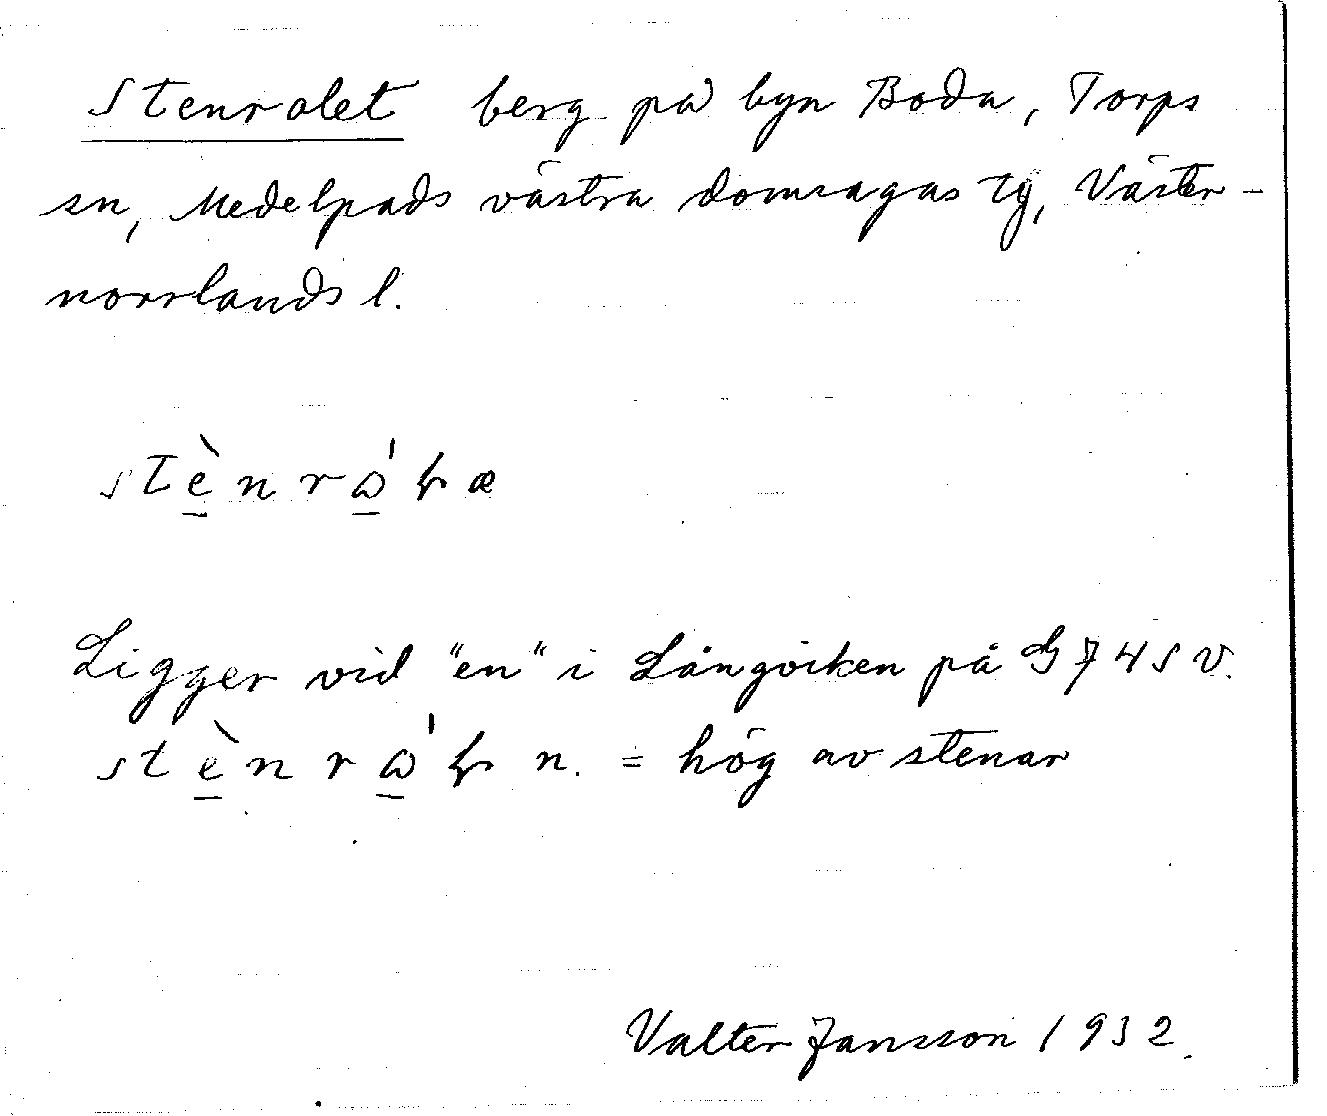 Stenrolet berg på byn Boda, Torps
sn, Medelpads västra domsagas tg, Väster-
norrlands l.
Ligger vid "en" i Långviken på G 74 SV.
n. = hög av stenar
Valter Jansson 1932.